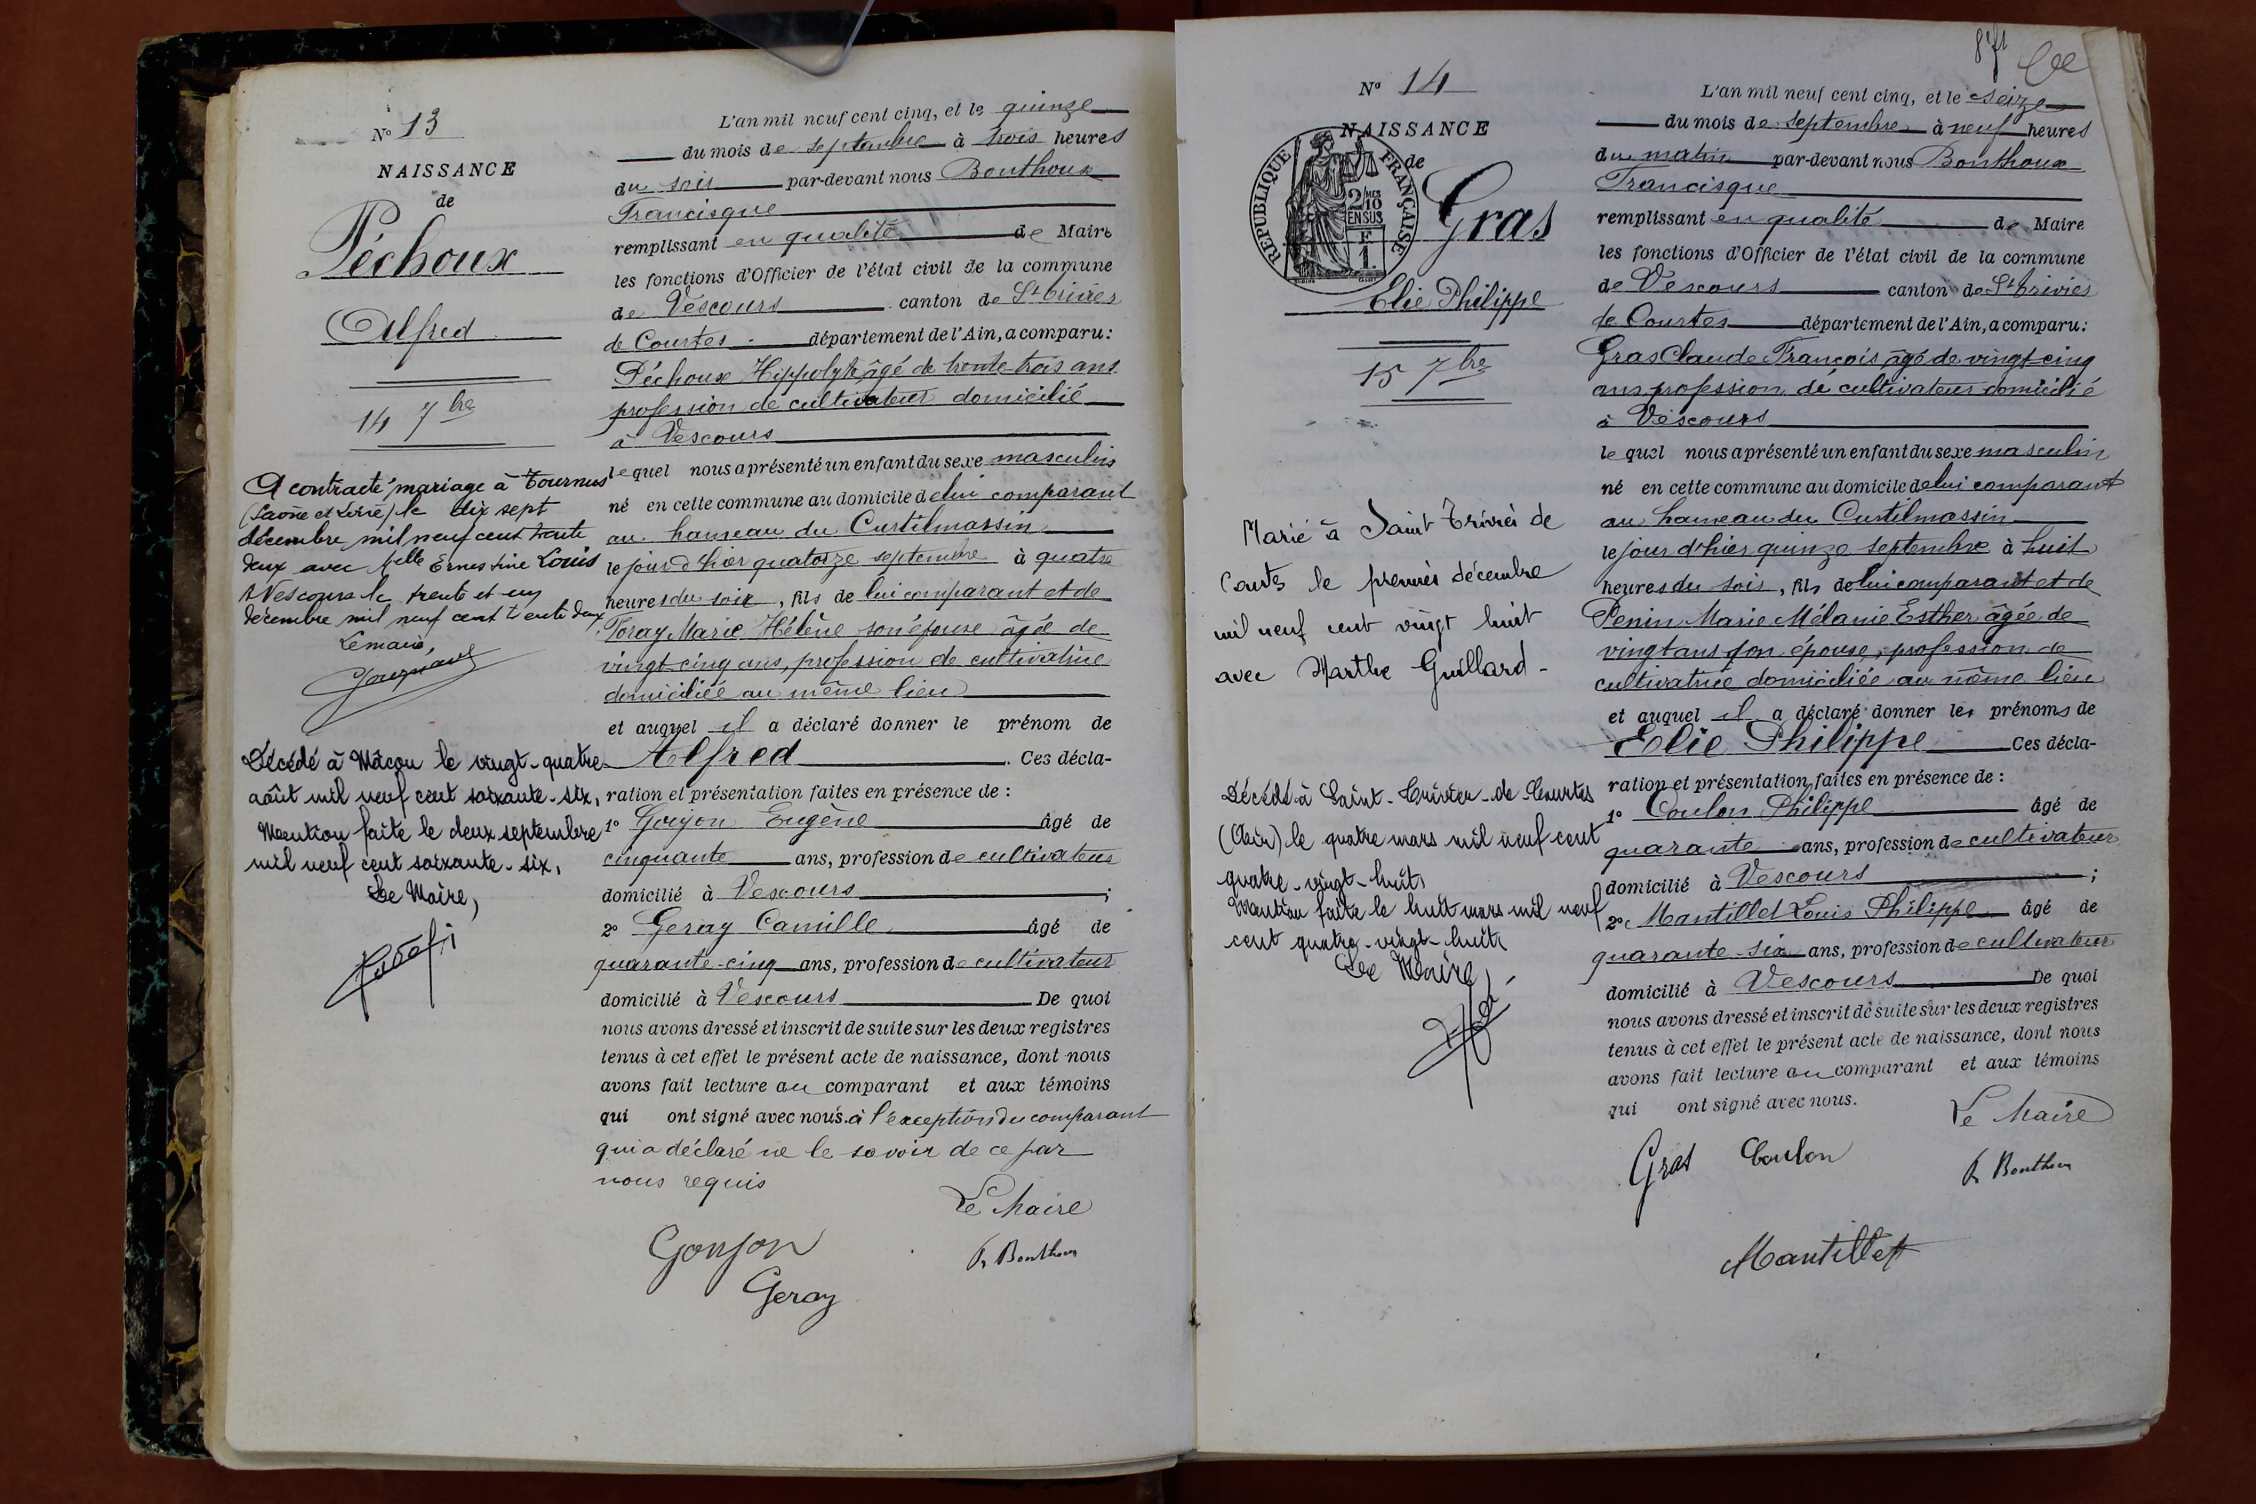 Nº 13
NAISSANCE
de
Péchoux
Alfred
14 7bre
A contracté mariage à Tournus
(Saône et Loire) le dix sept
décembre mil neuf cent trente
deux avec Melle Ernestine Louis
A Vescours le trente et un
décembre mil neuf cent trente deux
Le maire,
Décédé à Mâcon le vingt-quatre
août mil neuf cent soixante-six,
Mention faite le deux septembre
mil neuf cent soixante-six,
Le Maire,
L'an mil neuf cent cinq, et le quinze
du mois de septembre à trois heures
du soir par-devant nous Bonthoux
Francisque
remplissant en qualité de Maire
les fonctions d'Officier de l'état civil de la commune
de Vescours canton de St Trivier
de Courtes département de l'Ain, a comparu:
Péchoux Hippolyte âgé de trente-trois ans
profession de cultivateur domicilié
à Vescours
lequel nous a présenté un enfant du sexe masculin
né en cette commune au domicile de lui comparant
au hameau du Curtilmassin
le jour d'hier quatorze septembre à quatre
heures du soir, fils de lui comparant et de
Foray Marie Hélène son épouse âgée de
vingt-cinq ans, profession de cultivatrice
domiciliée au même lieu
et auquel il a déclaré donner le prénom de
Alfred. Ces décla-
ration et présentation faites en présence de :
1º Goujon Eugène âgé de
cinquante ans, profession de cultivateur
domicilié à Vescours ;
2º Geray Camille âgé de
quarante-cinq ans, profession de cultivateur
domicilié à Vescours De quoi
nous avons dressé et inscrit de suite sur les deux registres
tenus à cet effet le présent acte de naissance, dont nous
avons fait lecture au comparant et aux témoins
qui ont signé avec nous. à l'exception du comparant
qui a déclaré ne le savoir de ce par
nous requis
Le Maire
Goujon
F. Bonthoux
Geray
Nº 14
NAISSANCE
de
REPUBLIQUE FRANÇAISE
2/10
EN SUS
F
1.
Gras
Elie Philippe
15 7bre
Marié à Saint Trivier de
Courtes le premier décembre
mil neuf cent vingt huit
avec Marthe Guillard -
Décédé à Saint-Trivier-de-Courtes
(Ain) le quatre mars mil neuf cent
quatre-vingt-huit,
Mention faite le huit mars mil neuf
cent quatre-vingt-huit,
Le Maire,
L'an mil neuf cent cinq, et le seize
du mois de septembre à neuf heures
du matin par-devant nous Bonthoux
Francisque
remplissant en qualité de Maire
les fonctions d'Officier de l'état civil de la commune
de Vescours canton de St Trivier
de Courtes département de l'Ain, a comparu:
Gras Claude François âgé de vingt-cinq
ans profession de cultivateur domicilié
à Vescours
lequel nous a présenté un enfant du sexe masculin
né en cette commune au domicile de lui comparant
au hameau du Curtilmassin
le jour d'hier quinze septembre à huit
heures du soir, fils de lui comparant et de
Penin Marie Mélanie Esther âgée de
vingt ans son épouse, profession de
cultivatrice domiciliée au même lieu
et auquel il a déclaré donner les prénoms de
Elie Philippe Ces décla-
ration et présentation faites en présence de :
1º Coulon Philippe âgé de
quarante ans, profession de cultivateur
domicilié à Vescours ;
2º Mantillet Louis Philippe âgé de
quarante-six ans, profession de cultivateur
domicilié à Vescours De quoi
nous avons dressé et inscrit de suite sur les deux registres
tenus à cet effet le présent acte de naissance, dont nous
avons fait lecture au comparant et aux témoins
qui ont signé avec nous.
Le Maire
Gras Coulon
F. Bonthoux
Mantillet